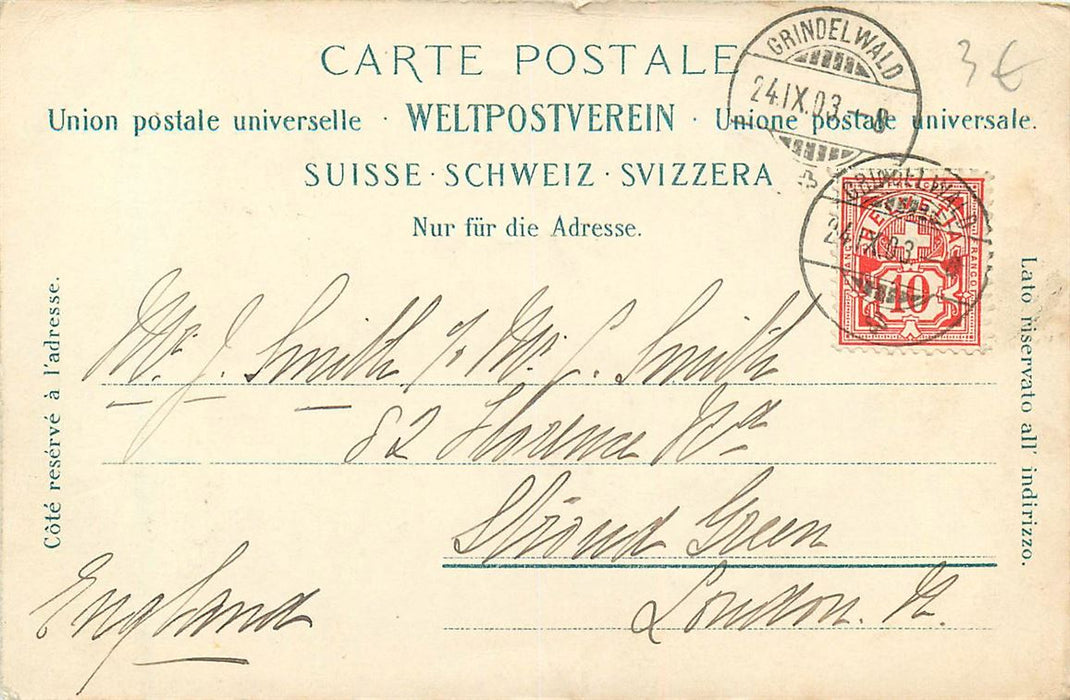 CARTE POSTALE
Union postale universelle · WELTPOSTVEREIN · Unione postale universale.
SUISSE · SCHWEIZ · SVIZZERA
Nur für die Adresse.
GRINDELWALD
24.IX.03.–8
3€
GRINDELWALD
24.IX.03
HELVETIA
FRANCO
10
Côté resérvé à l'adresse.
Lato riservato all' indirizzo.
Mr. J. Smith c/o Mr. J. Smith
82 Florence Rd
Stroud Green
London. N.
England